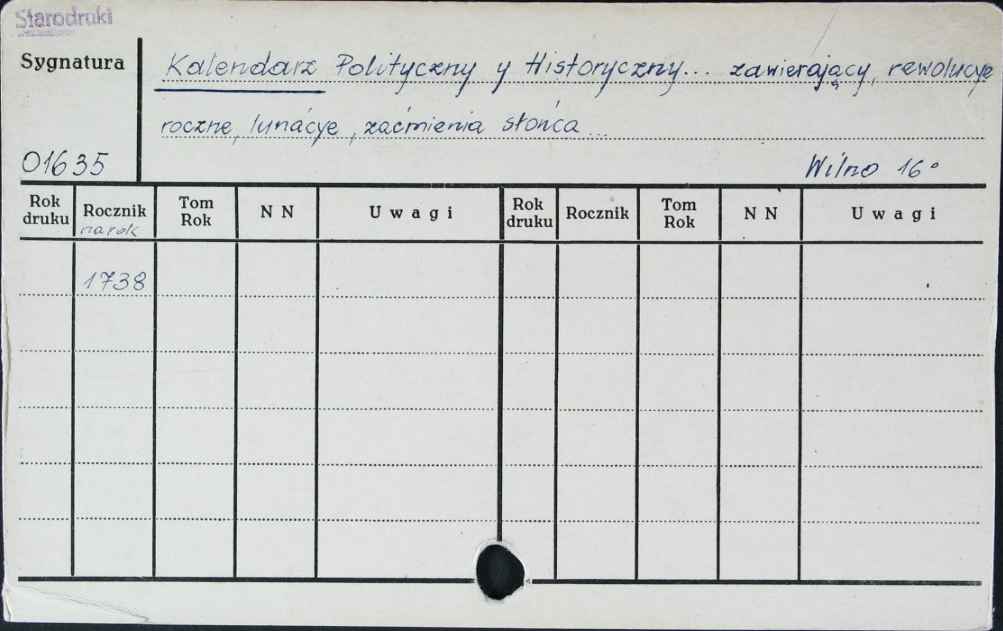 Starodruki
Sygnatura
Kalendarz Polityczny y Historyczny... zawierający, rewolucye
roczne, lunacye, zaćmienia słońca...
01635
Wilno 16°
Rok druku Rocznik na rok Tom Rok N N Uwagi Rok druku Rocznik Tom Rok N N Uwagi
1738